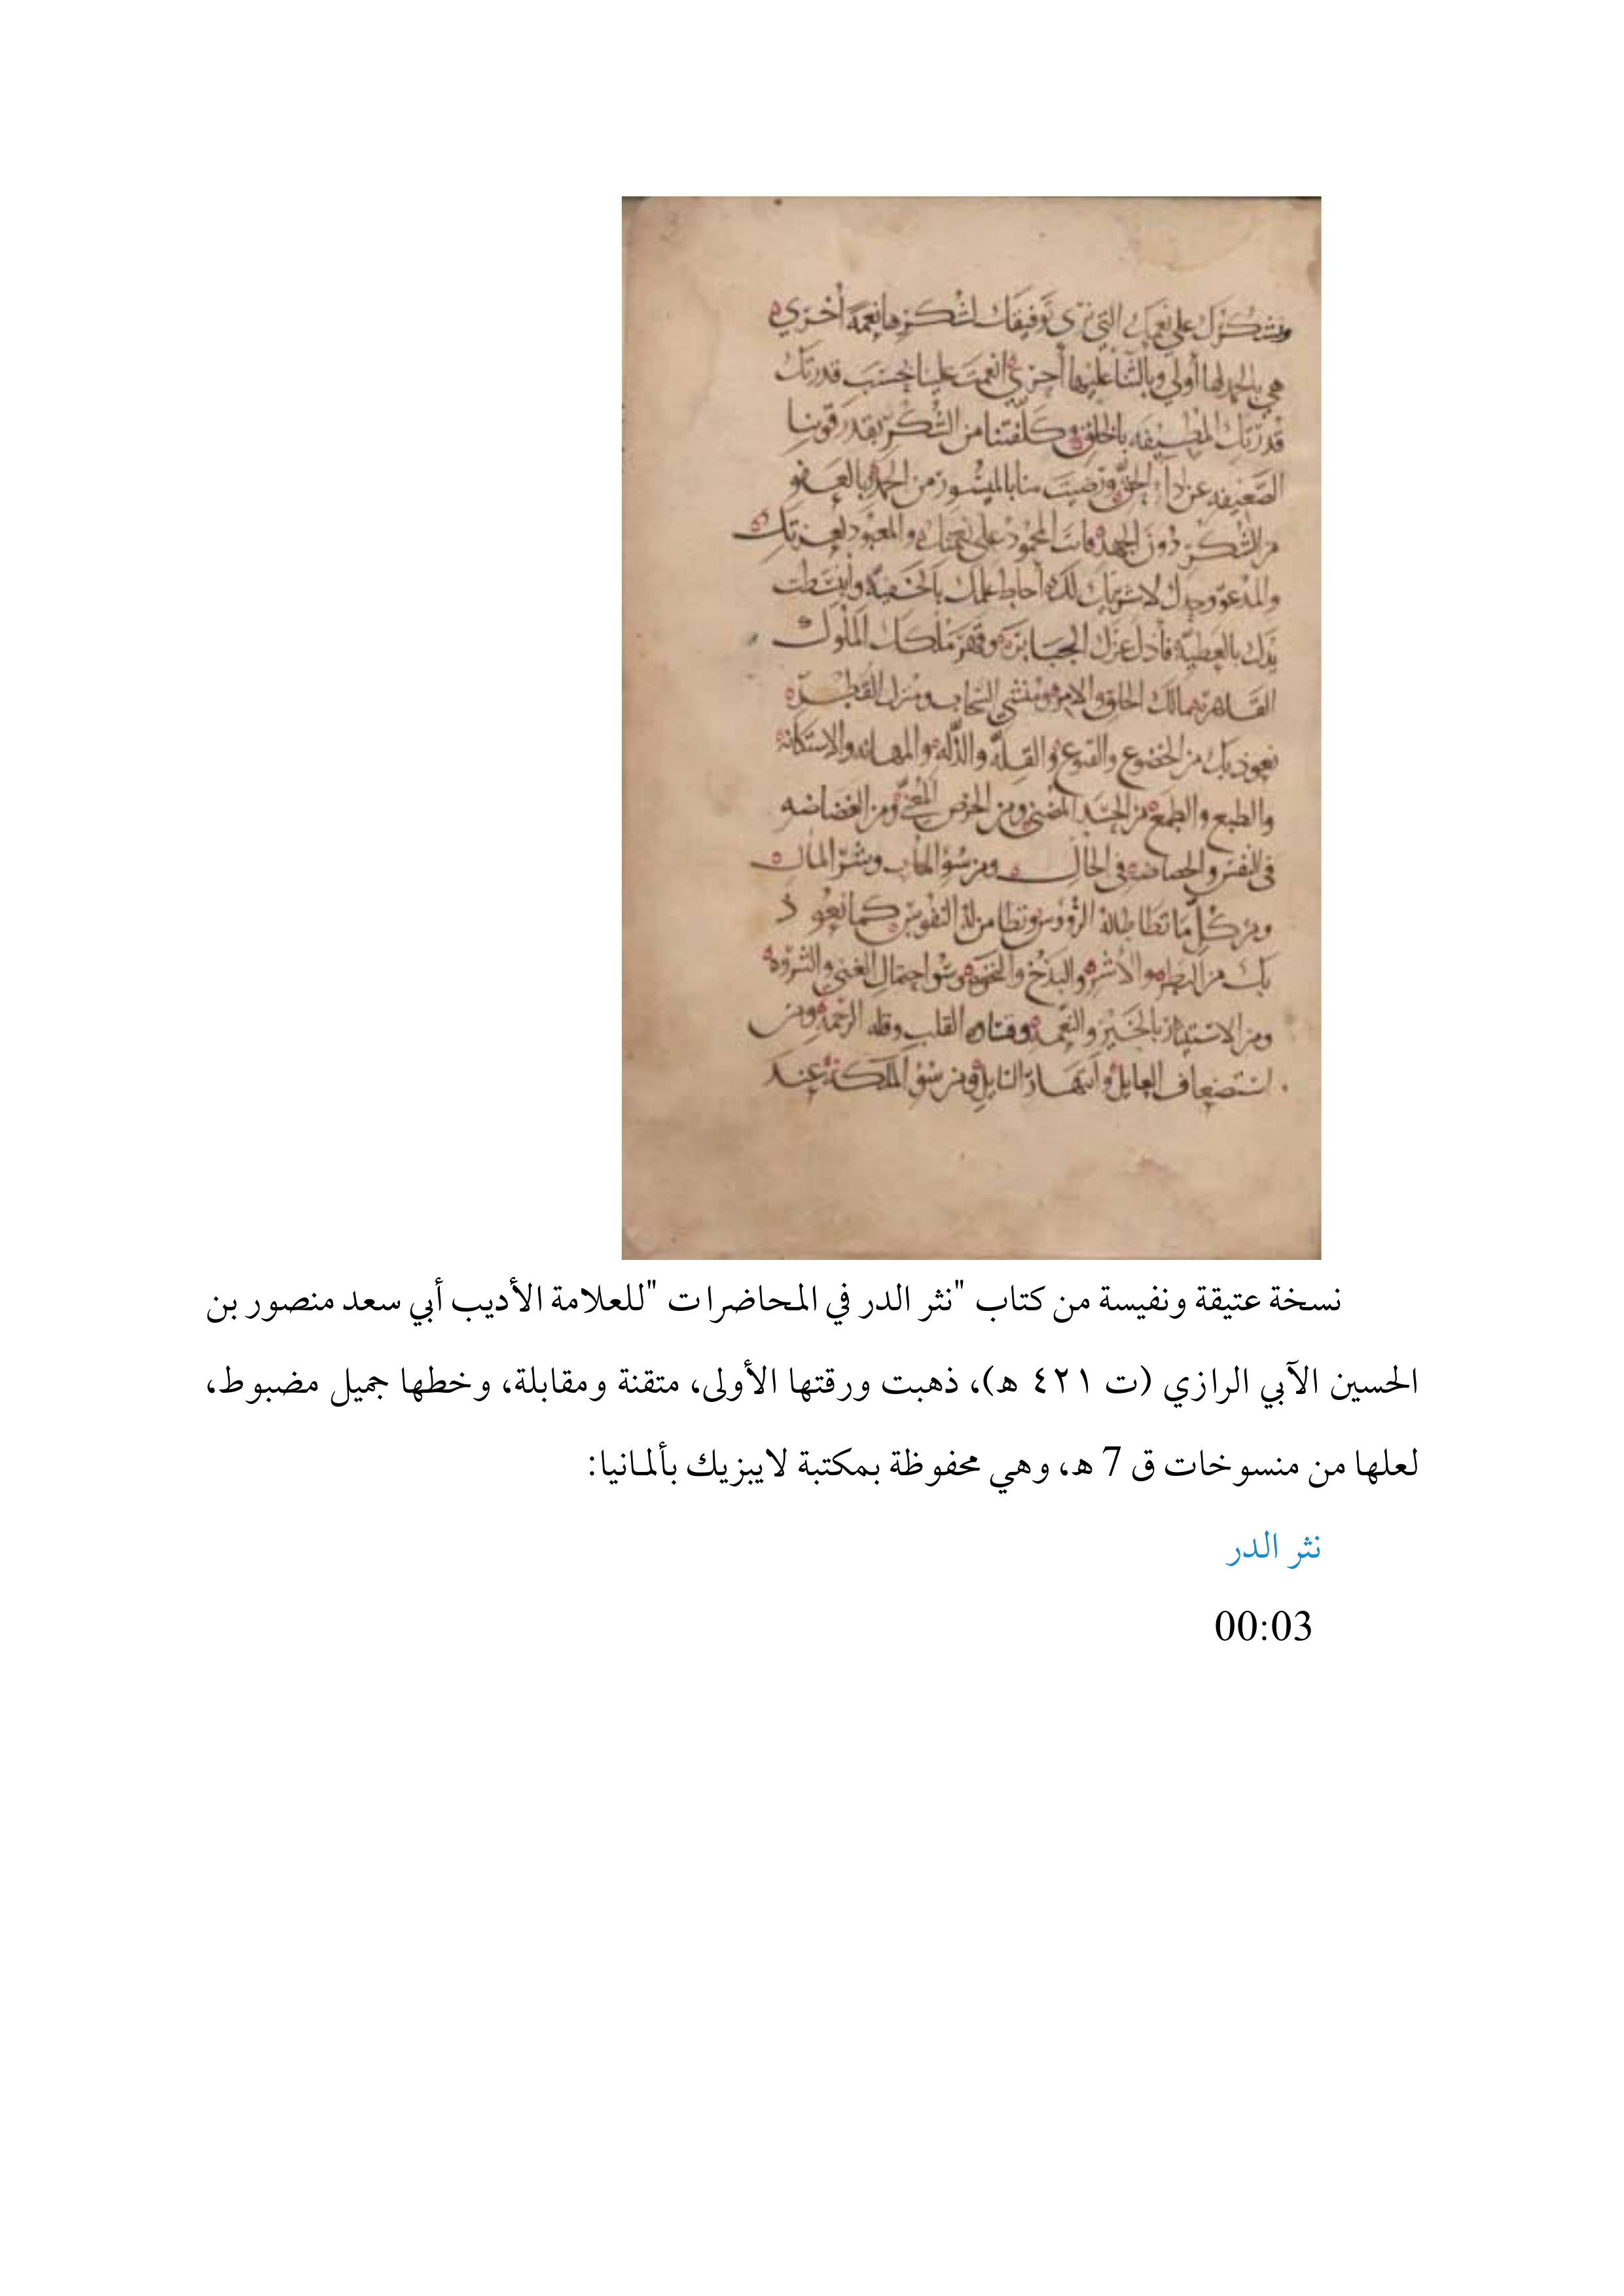 ونشكرك على نعمك التي نرى توفيقك لشكرها نعمة أخرى
هي بالحمد لها أولى وبالثنا عليها أحرى أنعمت علينا بحسب قدرتك
قدرتك المطيفه بالخلق وكلفتنا من الشكر بقدر قوتنا
الضعيفه عن اداء الحق ورضيت منا بالميسور من الحمد بالعفو
من الشكر دون الجهد فانت المحمود على نعمتك والمعبود لعزتك
والمدعو وحدك لا شريك لك أحاط علمك بالخفية وانبسطت
يدك بالعطية فأذل عزك الجبابرة وقهر ملكك الملوك
القاهره مالك الخلق والامر ومنشي السحاب ومنزل القطر
نعوذ بك من الخضوع والقنوع والقلة والذله والمهانه والاستكانة
والطبع والطمع من الحسد المضني ومن الحرص المعني ومن الغضاضه
في النفس والخصاصه في الحال ومن سوء وشر المال
ومن كل ما تطاطا له الرؤوس وتطامن له النفوس كما نعوذ
بك من البطر والأشر والبذخ والنخوة وسوء احتمال الغنى والثروه
ومن الاستيثار بالخير والنعمة وقساوه القلب وقله الرحمة ومن
استضعاف العايل وانتهار السايل ومن سوء الملكة عند
نسخة عتيقة ونفيسة من كتاب "نثر الدر في المحاضرات "للعلامة الأديب أبي سعد منصور بن
الحسين الآبي الرازي (ت ٤٢١ هـ)، ذهبت ورقتها الأولى، متقنة ومقابلة، وخطها جميل مضبوط،
لعلها من منسوخات ق 7 هـ، وهي محفوظة بمكتبة لايبزيك بألمانيا:
نثر الدر
00:03